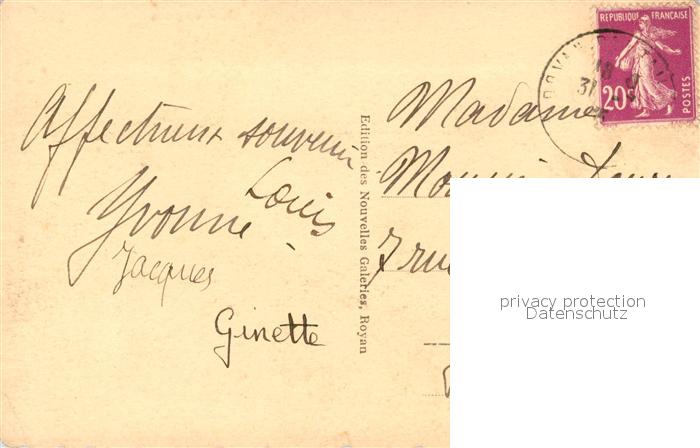 Affectueux souvenir
Louis
Yvonne
Jacques
Ginette
Edition des Nouvelles Galeries, Royan
REPUBLIQUE FRANÇAISE
20c
POSTES
ROYAN
18
31
Madame
7 rue
privacy protection
Datenschutz